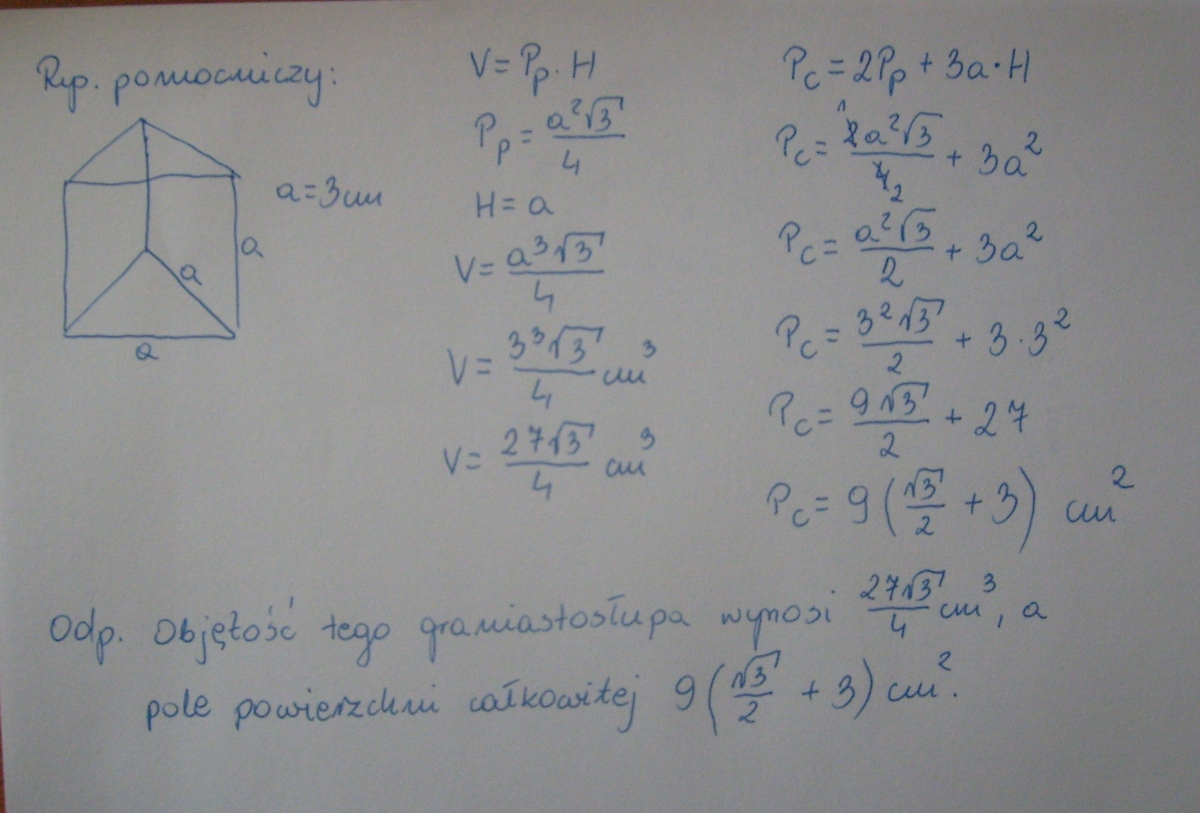 Rys. pomocniczy:
a
a
a
a=3cm
V= Pp · H
Pp = a²√3/4
H= a
V= a³√3/4
V= 3³√3/4 cm³
V= 27√3/4 cm³
Pc = 2Pp + 3a·H
Pc = 2a²√3/4 + 3a²
1
2
Pc = a²√3/2 + 3a²
Pc = 3²√3/2 + 3·3²
Pc = 9√3/2 + 27
Pc = 9(√3/2 + 3) cm²
Odp. Objętość tego graniastosłupa wynosi 27√3/4 cm³, a
pole powierzchni całkowitej 9(√3/2 + 3) cm².